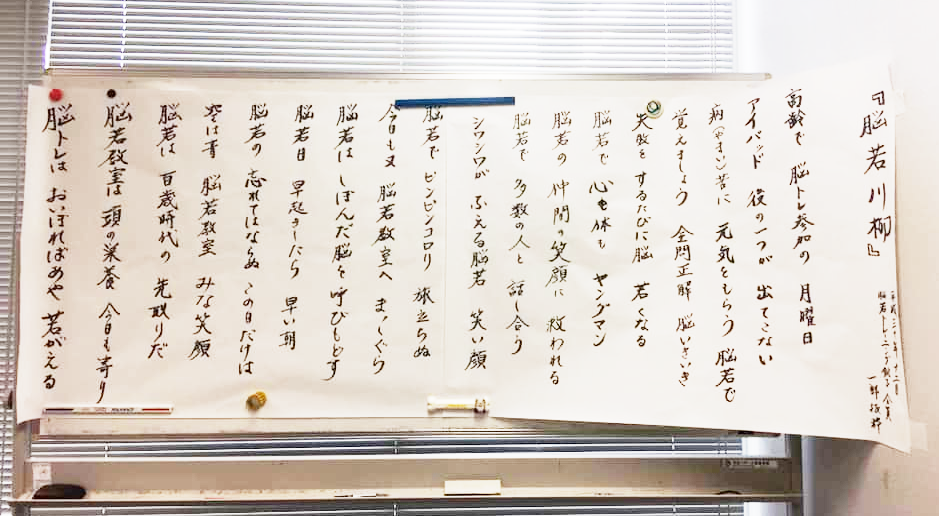 『脳若川柳』
脳若トレーニング
一部抜粋
高齢で 脳トレ参加の 月曜日
アイパッド 役の一つが 出てこない
病(やまい)苦に 元気をもらう 脳若で
覚えましょう 全問正解 脳いきいき
失敗を するたびに脳 若くなる
脳若で 心も体も ヤングマン
脳若の 仲間の笑顔に 救われる
脳若で 多数の人と 話し合う
シワシワが ふえる脳若 笑い顔
脳若で ピンピンコロリ 旅立ちぬ
今日も又 脳若教室へ まっしぐら
脳若は しぼんだ脳を 呼びもどす
脳若日 早起きしたら 早い朝
脳若の 忘れてはならぬ この日だけは
空は青 脳若教室 みな笑顔
脳若は 百歳時代の 先取りだ
脳若教室は 頭の栄養 今日も寄り
脳トレは おいぼればあや 若がえる